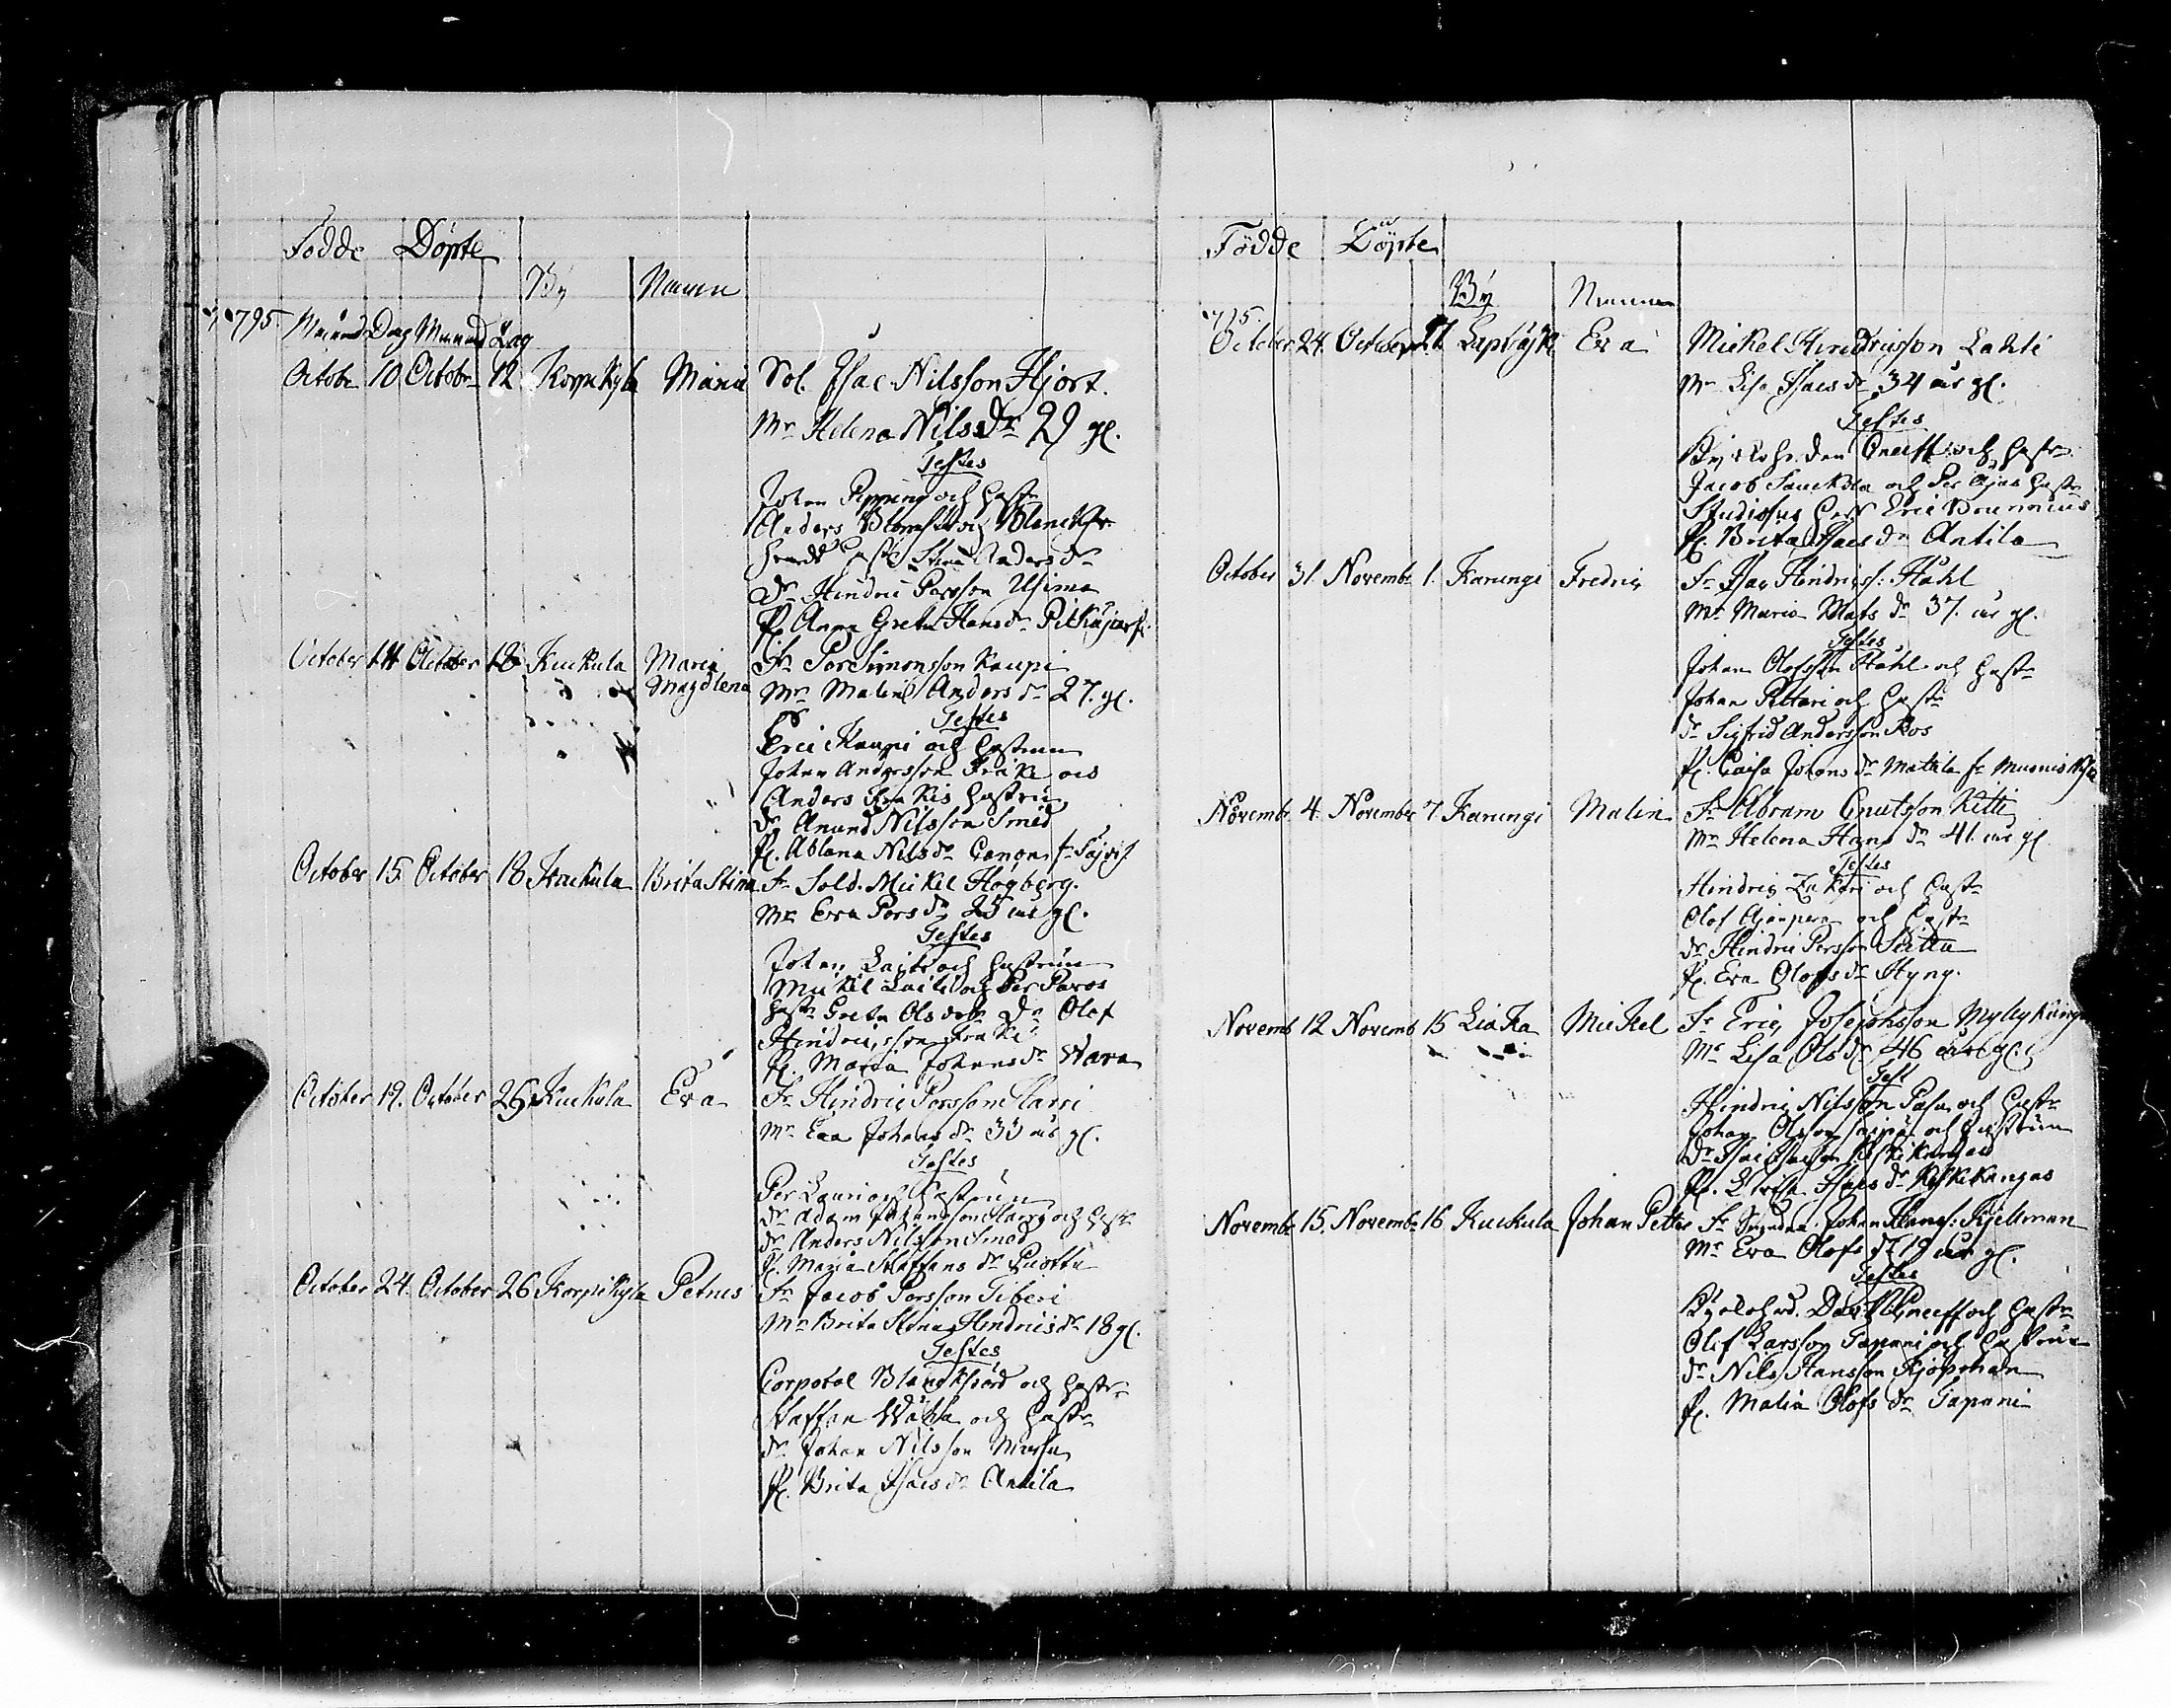 Födde Döpte
By Namn
1795 Månad Dag Månad Dag
Octobr 10 Octobr 12 Korpikyla Maria Sol. Isac Nilsson Hjort.
Mr Helena Nilsdr 29 gl.
Testes
Johan Pipping och hustr
Anders
Stina Andersdr
Dr Hindric Persson Usima
P. Anna Greta Hansdr Pitkäjärf.
October 14 October 18 Kuckula Maria Magdlena Fr Per Simonsson Kaupi
Mr Malin Andersdr 27. gl.
Testes
Eric Kaupi och hustrun
Johan Andersson Fraki och
Anders Frakis hustru
Dr Anund Nilsson Smed
P. Ablona Nilsdr
October 15 October 18 Kuckula Brita Stina Fr Sold. Mickel Högberg.
Mr Eva Persdr 25 år gl.
Testes
Johan Laiti och hustrun
Mickel Laiti och Per Paros
hustr Greta Olsdotr Dr Olof
Hindricsson Fraki
P. Maria Johansdr Wara
October 19. October 26 Kuckula Eva Fr Hindric Persson Harri
Mr Eva Johansdr 33 år gl.
Testes
Per Lauri och hustrun
Dr Adam Johansson Harri och hustr
Dr Anders Nilsson Smed
P. Maria Staffansdr Puotta
October 24. October 26 Korpikyla Petrus Fr Jacob Persson Tiberi
Mr Brita Stina Hindricsdr 18 gl.
Testes
Corporal Blanckfiärd och hustr
Staffan Wähä och hustr
dr Johan Nilsson Mursu
P. Brita Isacsdr Antila
Födde Döpte
By Namn
1795.
October 24. October Eva Mickel Hindricsson Lahti
Mr Lisa Isacsdr 34 år gl.
Testes
Kyrkohr. den Cneiff och hustr
Jacob och Per hustr
Studiosus Herr Eric Brunnius
P. Brita Isacsdr Antila
October 31. Novembr 1. Karungi Fredric Fr Isac Hindricss: Ståhl
Mr Maria Matsdr 37. år gl.
Testes
Johan Olofsson Ståhl och hustr
Johan Pittari och hustr
dr Sigfrid Andersson Ros
P. Caisa Johansdr Matila
Novembr 4. November 7. Karungi Malin Fr Abram Cnutsson Kitti
Mr Helena Hansdr 41. år gl.
Testes
Hindric Zakari och hustr
Olof och hustr
dr Hindric Persson
P. Eva Olofsdr Hyny.
Novemb 12 Novemb 15 Liaka Mickel Fr Eric Josephsson Mylykangas
Mr Lisa Olsdr 46 år gl.
Test
Hindric Nilsson Pasa och hustr
Johan Olsson och hustrun
dr Isac Isacsson Keskikangas
P. Isacsdr Keskikangas
Novembr 15. Novembr 16 Kuckula Johan Petter Fr Johan Hanss: Kjellman
Mr Eva Olofsdr 19 år gl.
Testes
Kyrkohrd. Dav. Cneiff och hustr
Olof Larsson Tapani och hustrun
dr Nils Hansson Kjöpman
P. Malin Olofsdr Tapani